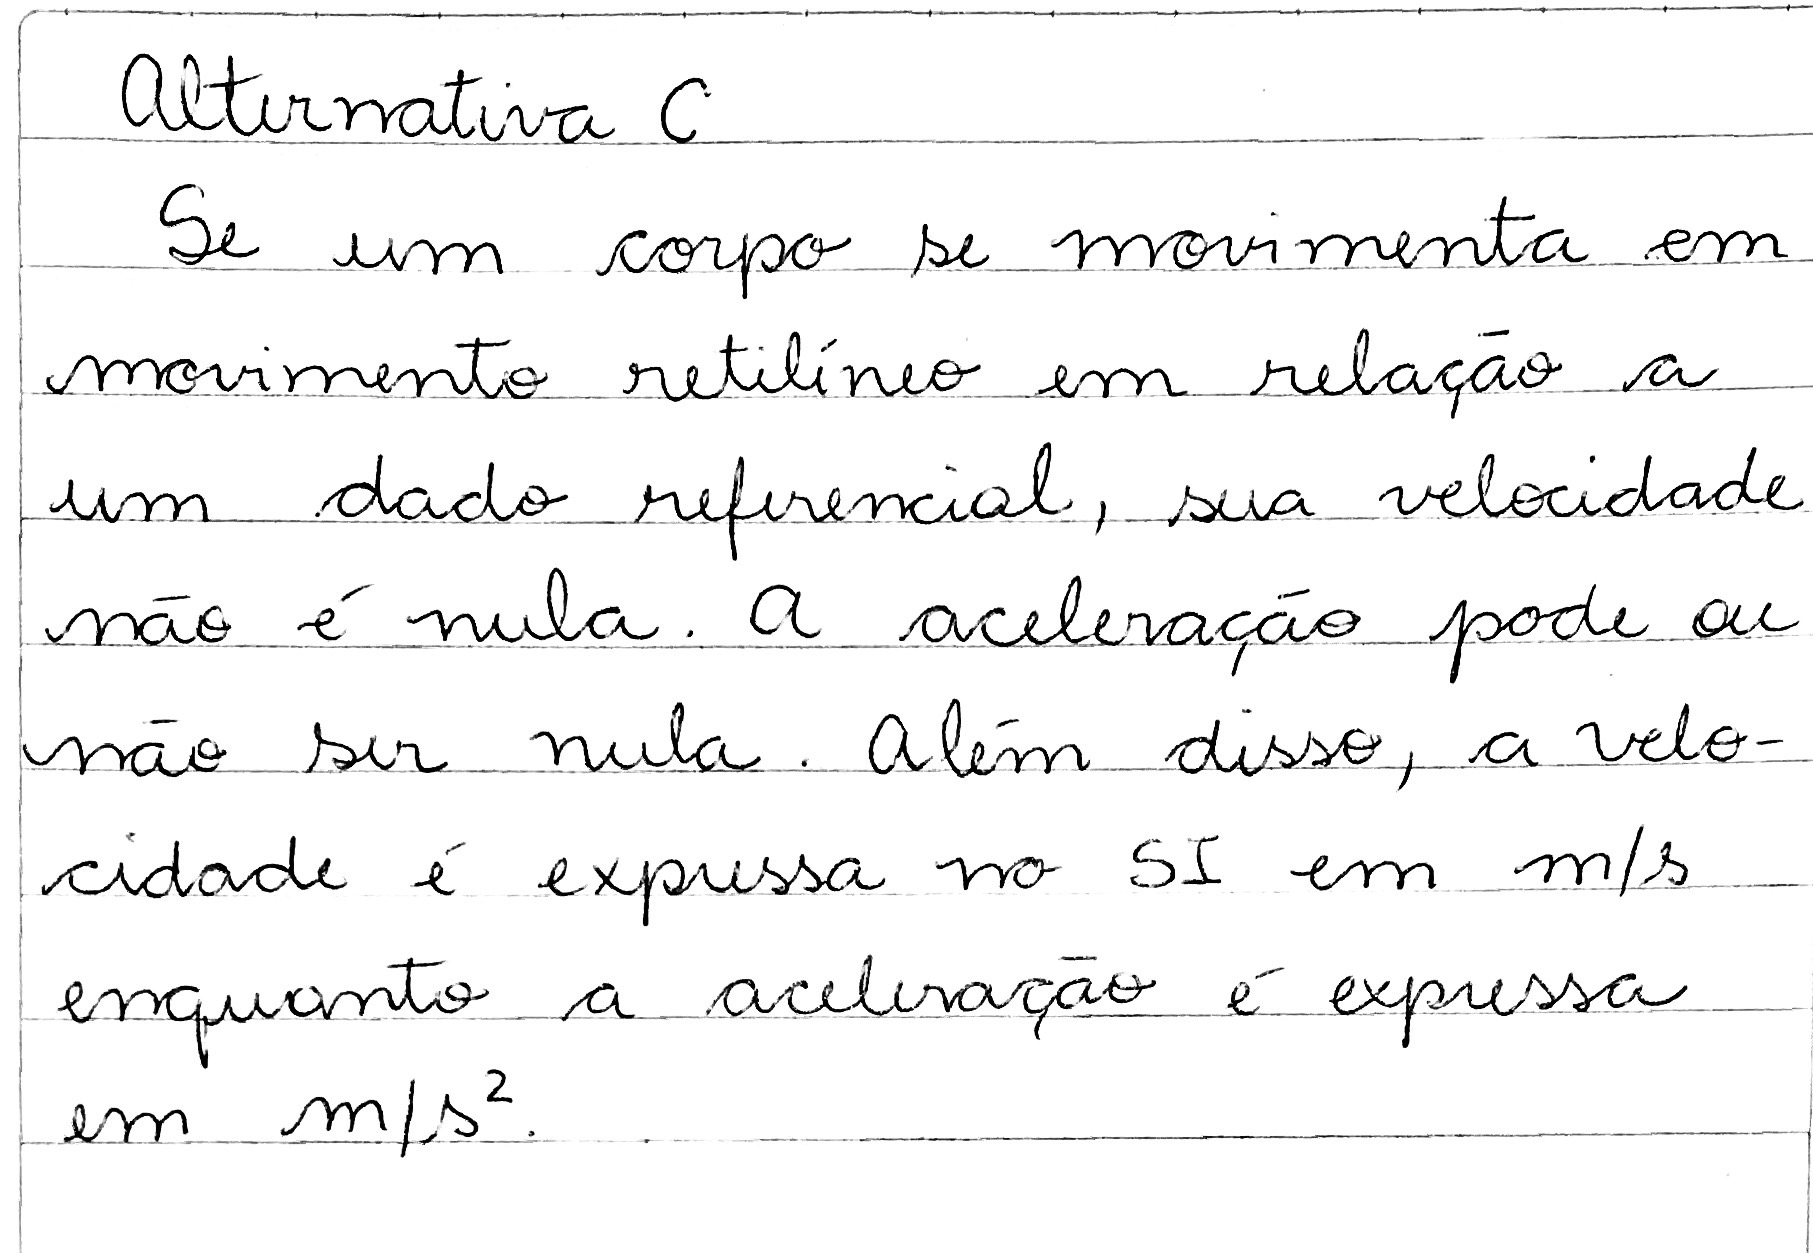 Alternativa C
Se um corpo se movimenta em
movimento retilíneo em relação a
um dado referencial, sua velocidade
não é nula. A aceleração pode ou
não ser nula. Além disso, a velo-
cidade é expressa no SI em m/s
enquanto a aceleração é expressa
em m/s².